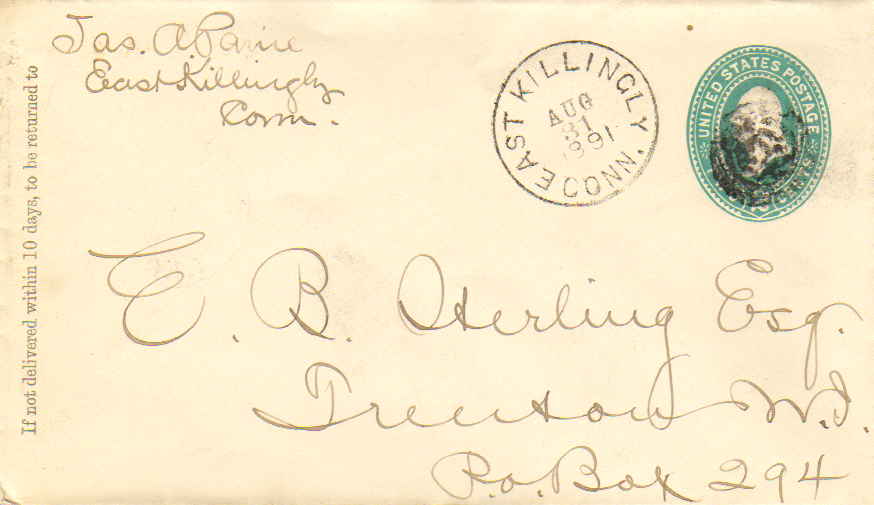 Jas. A Paine
East Killingly
Conn.
If not delivered within 10 days, to be returned to
EAST KILLINGLY CONN.
AUG
31
1891
UNITED STATES POSTAGE
TWO CENTS
E. B. Sterling Esq.
Trenton N.J.
P.O. Box 294